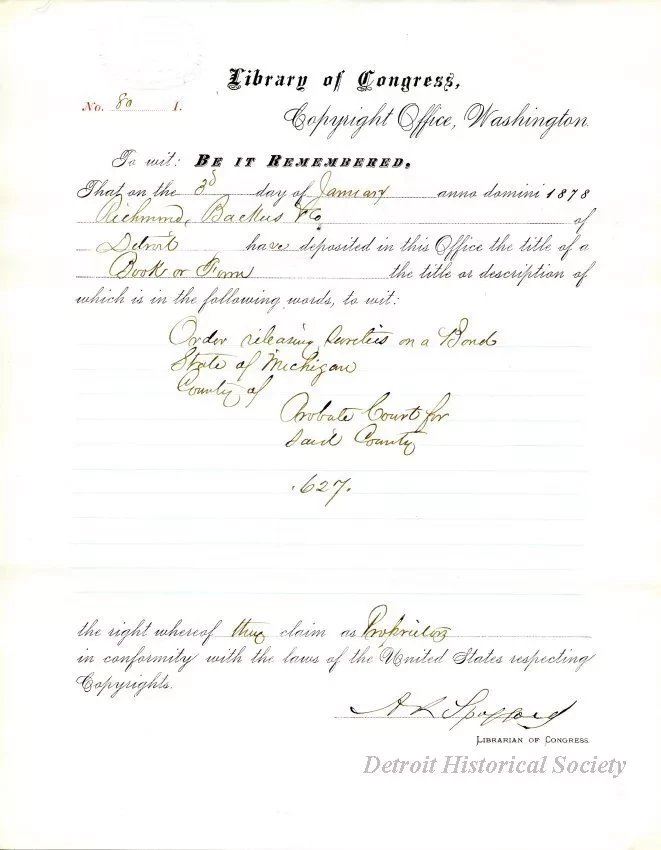 Library of Congress,
No. 80 I.
Copyright Office, Washington.
To wit: BE IT REMEMBERED,
That on the 3d day of January anno domini 1878
Richmond, Backus & Co. of
Detroit have deposited in this Office the title of a
Book or Form the title or description of
which is in the following words, to wit:
Order releasing Sureties on a Bond
State of Michigan
County of
Probate Court for
said County
.627.
the right whereof they claim as Proprietors
in conformity with the laws of the United States respecting
Copyrights.
A R Spofford
LIBRARIAN OF CONGRESS.
Detroit Historical Society